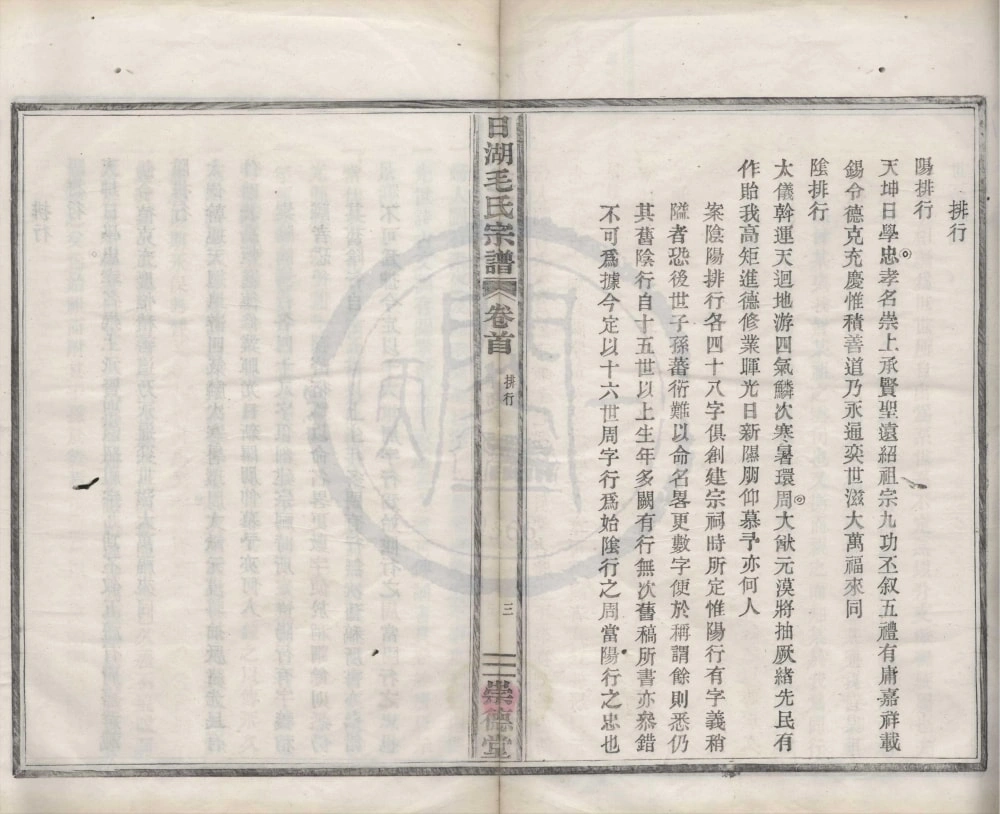 排行
陽排行
天坤日學忠孝名崇上承賢聖遠紹祖宗九功丕叙五禮有庸嘉祥載
錫令德克充慶惟積善道乃永通奕世滋大萬福來同
陰排行
太儀斡運天迴地游四氣鱗次寒暑環周大猷元漠將抽厥緒先民有
作貽我高矩進德修業暉光日新隰朋仰慕予亦何人
案陰陽排行各四十八字俱創建宗祠時所定惟陽行有字義稍
隘者恐後世子孫蕃衍難以命名畧更數字便於稱謂餘則悉仍
其舊陰行自十五世以上生年多闕有行無次舊稿所書亦叅錯
不可爲據今定以十六世周字行爲始陰行之周當陽行之忠也
日湖毛氏宗譜 卷首 排行 三 崇德堂